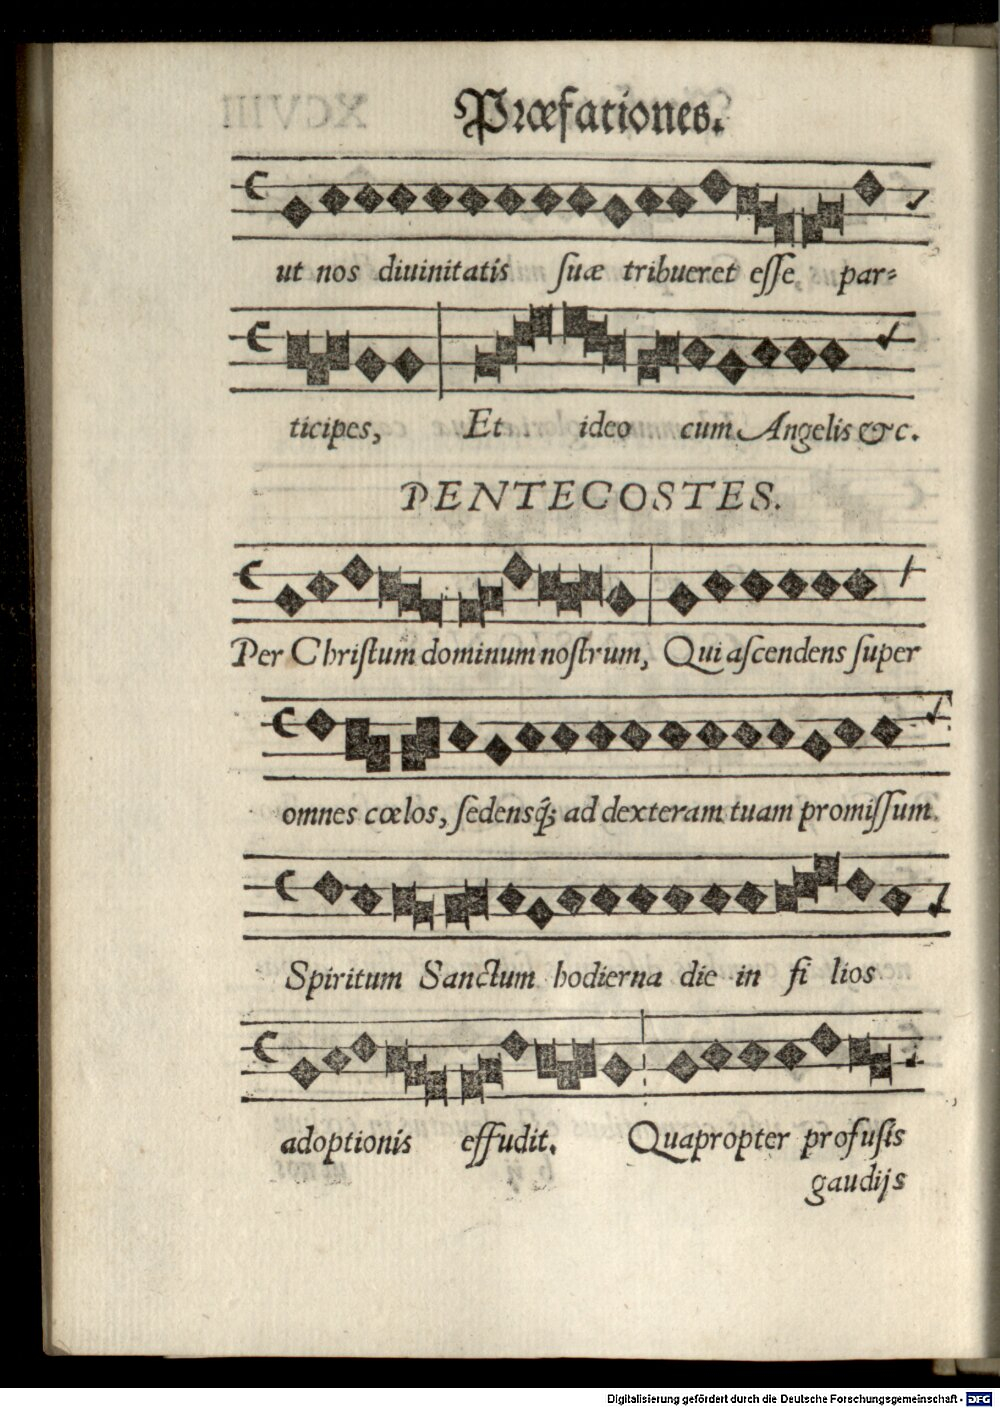 Præfationes.
ut nos diuinitatis ſuæ tribueret eſſe, par⸗
ticipes, Et ideo cum Angelis &c.
PENTECOSTES.
Per Chriſtum dominum noſtrum, Qui aſcendens ſuper
omnes cœlos, ſedensq́; ad dexteram tuam promiſſum.
Spiritum Sanctum hodierna die in fi lios
adoptionis effudit. Quapropter profuſis
gaudijs
Digitalisierung gefördert durch die Deutsche Forschungsgemeinschaft - DFG